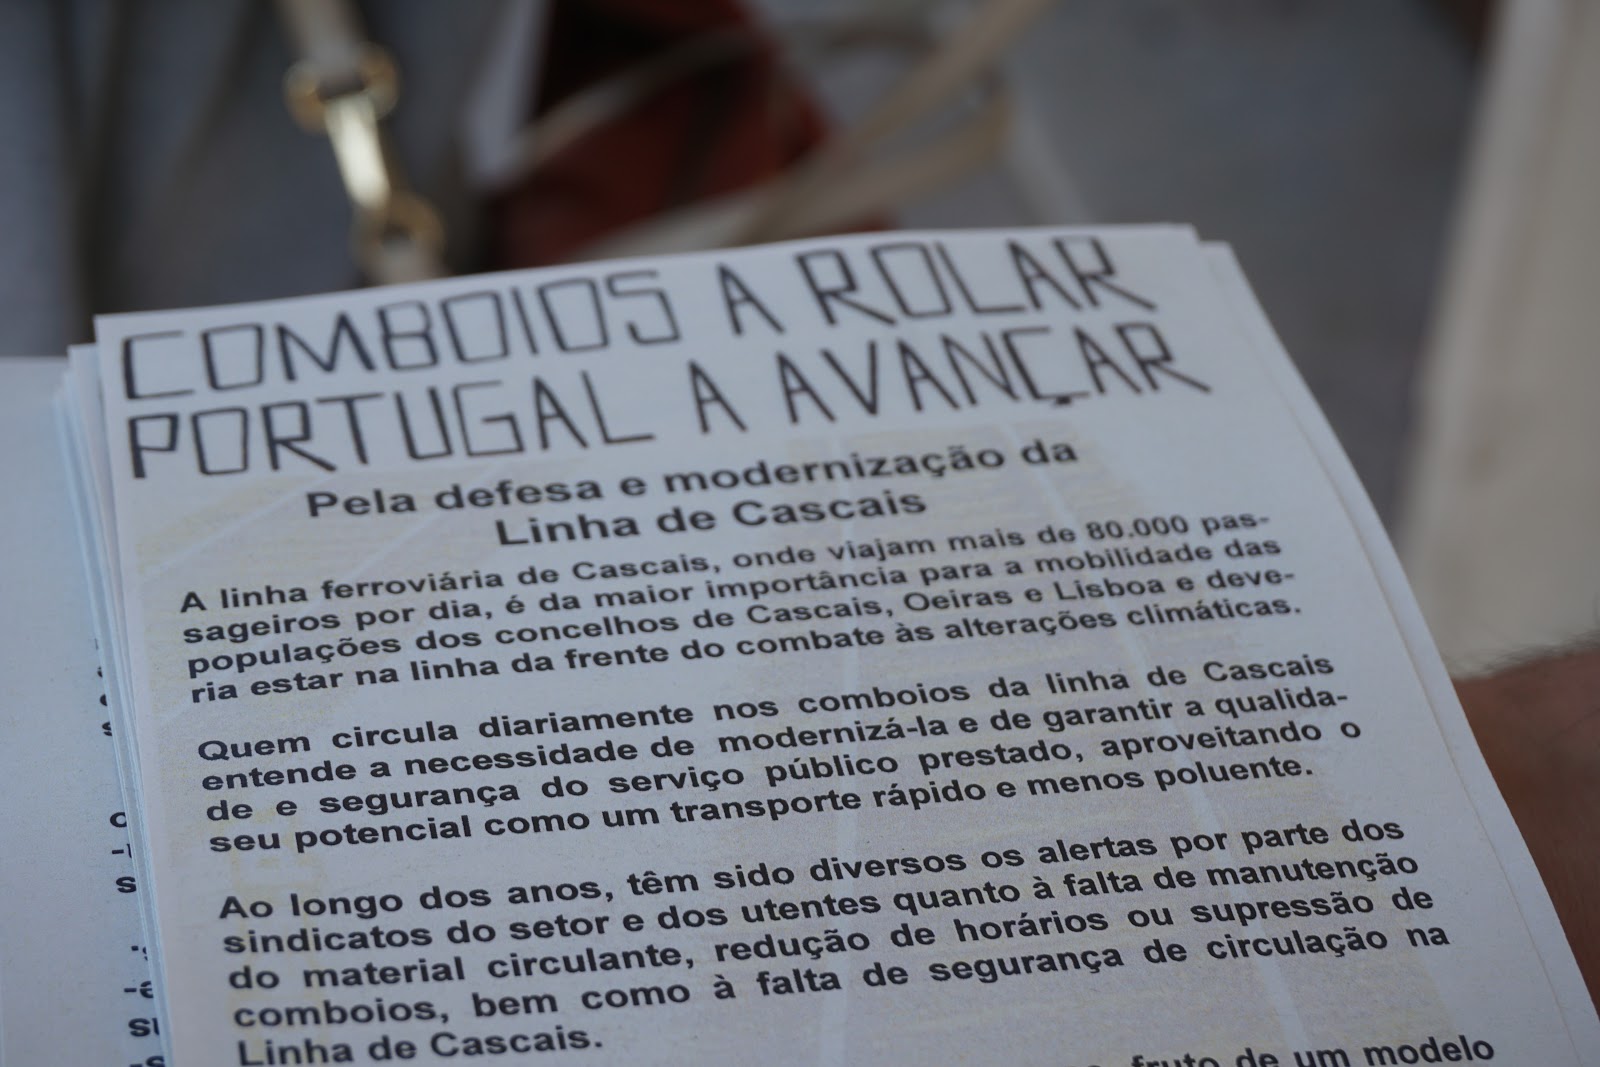 COMBOIOS A ROLAR
PORTUGAL A AVANÇAR
Pela defesa e modernização da
Linha de Cascais
A linha ferroviária de Cascais, onde viajam mais de 80.000 pas-
sageiros por dia, é da maior importância para a mobilidade das
populações dos concelhos de Cascais, Oeiras e Lisboa e deve-
ria estar na linha da frente do combate às alterações climáticas.
Quem circula diariamente nos comboios da linha de Cascais
entende a necessidade de modernizá-la e de garantir a qualida-
de e segurança do serviço público prestado, aproveitando o
seu potencial como um transporte rápido e menos poluente.
Ao longo dos anos, têm sido diversos os alertas por parte dos
sindicatos do setor e dos utentes quanto à falta de manutenção
do material circulante, redução de horários ou supressão de
comboios, bem como à falta de segurança de circulação na
Linha de Cascais.
fruto de um modelo